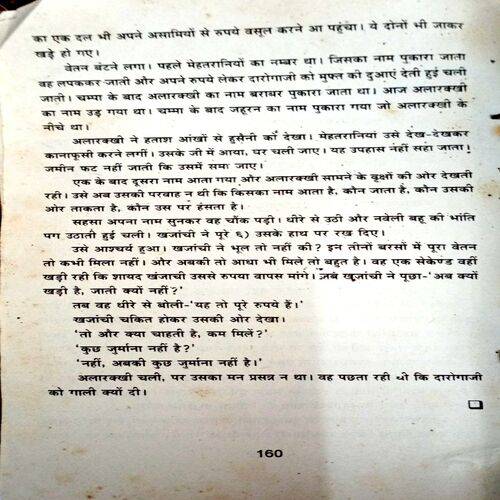 का एक दल भी अपने असामियों से रुपये वसूल करने आ पहुंचा। ये दोनों भी जाकर
खड़े हो गए।
वेतन बंटने लगा। पहले मेहतरानियों का नम्बर था। जिसका नाम पुकारा जाता
वह लपककर जाती और अपने रुपये लेकर दारोगाजी को मुफ्त की दुआएं देती हुई चली
जाती। चम्पा के बाद अलारक्खी का नाम बराबर पुकारा जाता था। आज अलारक्खी
का नाम उड़ गया था। चम्पा के बाद जहूरन का नाम पुकारा गया जो अलारक्खी के
नीचे था।
अलारक्खी ने हताश आंखों से हुसैनी को देखा। मेहतरानियां उसे देख-देखकर
कानाफूसी करने लगीं। उसके जी में आया, घर चली जाए। यह उपहास नहीं सहा जाता।
जमीन फट नहीं जाती कि उसमें समा जाए।
एक के बाद दूसरा नाम आता गया और अलारक्खी सामने के वृक्षों की ओर देखती
रही। उसे अब उसकी परवाह न थी कि किसका नाम आता है, कौन जाता है, कौन उसकी
ओर ताकता है, कौन उस पर हंसता है।
सहसा अपना नाम सुनकर वह चौंक पड़ी। धीरे से उठी और नवेली बहू की भांति
पग उठाती हुई चली। खजांची ने पूरे ६) उसके हाथ पर रख दिए।
उसे आश्चर्य हुआ। खजांची ने भूल तो नहीं की? इन तीनों बरसों में पूरा वेतन
तो कभी मिला नहीं। और अबकी तो आधा भी मिले तो बहुत है। वह एक सेकेण्ड वहीं
खड़ी रही कि शायद खंजाची उससे रुपया वापस मांगे। जब खजांची ने पूछा-'अब क्यों
खड़ी है, जाती क्यों नहीं?'
तब वह धीरे से बोली-'यह तो पूरे रुपये हैं।'
खजांची चकित होकर उसकी ओर देखा।
'तो और क्या चाहती है, कम मिलें?'
'कुछ जुर्माना नहीं है?'
'नहीं, अबकी कुछ जुर्माना नहीं है।'
अलारक्खी चली, पर उसका मन प्रसन्न न था। वह पछता रही थी कि दारोगाजी
को गाली क्यों दी।
160